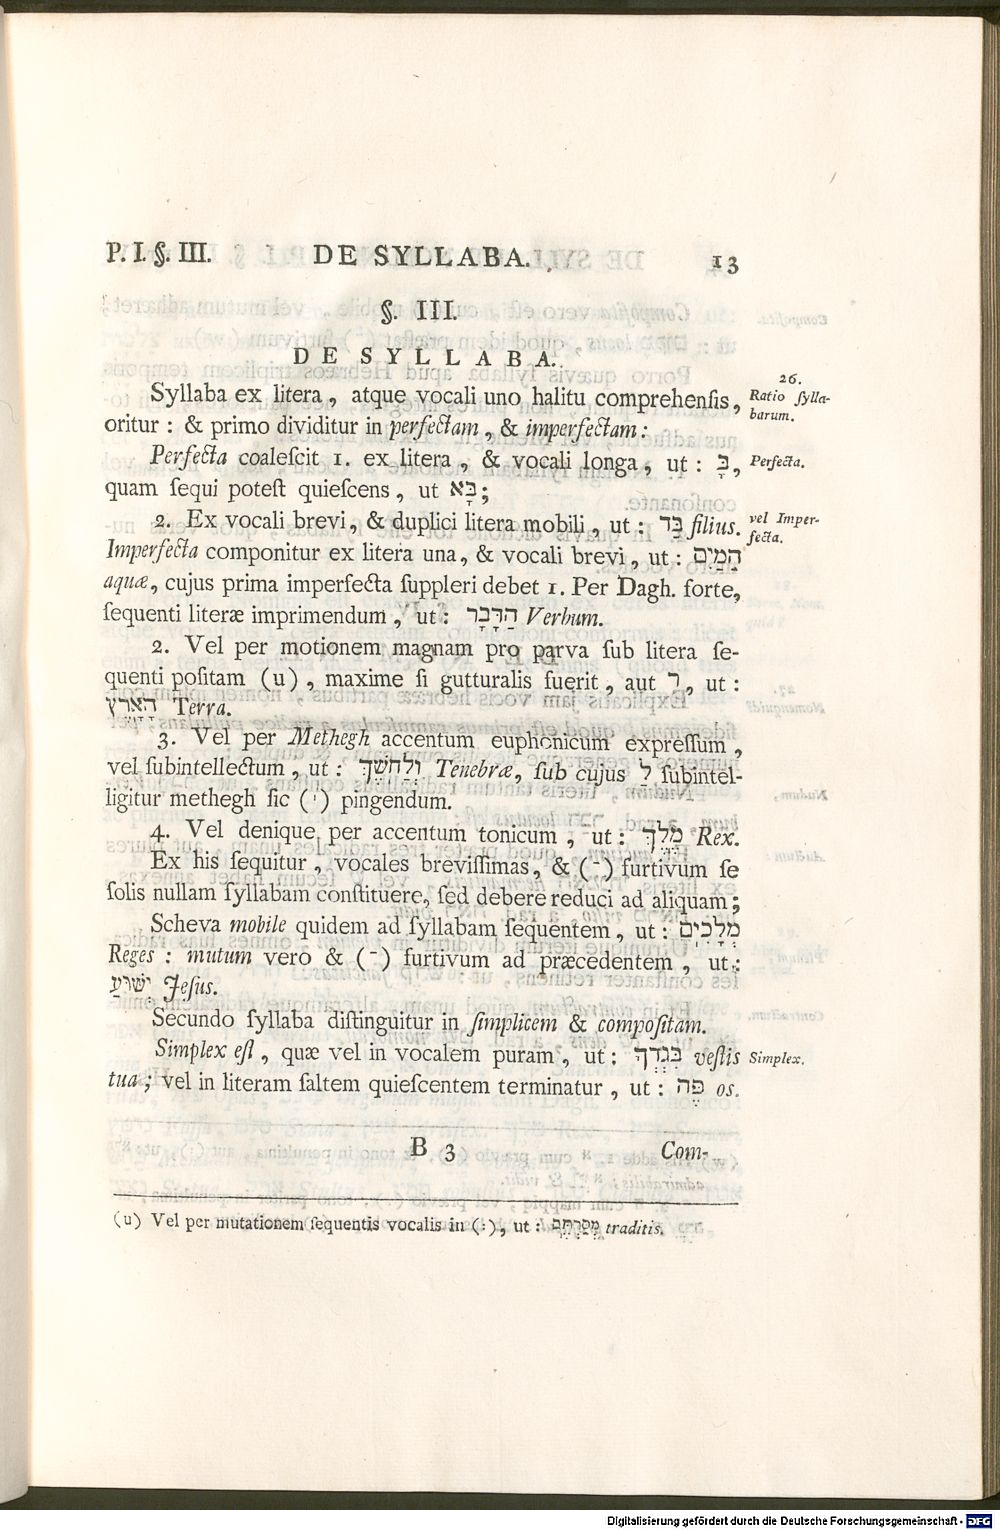 P. I. §. III. DE SYLLABA. 13
§. III.
DE SYLLABA.
Syllaba ex litera, atque vocali uno halitu comprehenſis,
26.
Ratio ſylla-
barum.
oritur : & primo dividitur in perfectam, & imperfectam :
Perfecta coaleſcit 1. ex litera, & vocali longa, ut : בָּ,
Perfecta.
quam ſequi poteſt quieſcens, ut בָּא;
2. Ex vocali brevi, & duplici litera mobili, ut : בַּר filius.
vel Imper-
fecta.
Imperfecta componitur ex litera una, & vocali brevi, ut : הַמַיִם
aquæ, cujus prima imperfecta ſuppleri debet 1. Per Dagh. forte,
ſequenti literæ imprimendum, ut : הַדָּבָר Verbum.
2. Vel per motionem magnam pro parva ſub litera ſe-
quenti poſitam (u), maxime ſi gutturalis fuerit, aut ר, ut :
הָאָרֶץ Terra.
3. Vel per Methegh accentum euphonicum expreſſum,
vel ſubintellectum, ut : וְלַחשֶׁךְ Tenebræ, ſub cujus לַ ſubintel-
ligitur methegh ſic (ˈ) pingendum.
4. Vel denique per accentum tonicum, ut : מֶלֶךְ Rex.
Ex his ſequitur, vocales breviſſimas, & (-) furtivum ſe
ſolis nullam ſyllabam conſtituere, ſed debere reduci ad aliquam;
Scheva mobile quidem ad ſyllabam ſequentem, ut : מְלָכִים
Reges : mutum vero & (-) furtivum ad præcedentem, ut :
יֵשׁוּעַ Jeſus.
Secundo ſyllaba diſtinguitur in ſimplicem & compoſitam.
Simplex eſt, quæ vel in vocalem puram, ut : בִּגְדֶךָ veſtis
Simplex.
tua ; vel in literam ſaltem quieſcentem terminatur, ut : פֶּה os.
B 3 Com-
(u) Vel per mutationem ſequentis vocalis in (:), ut : traditis.